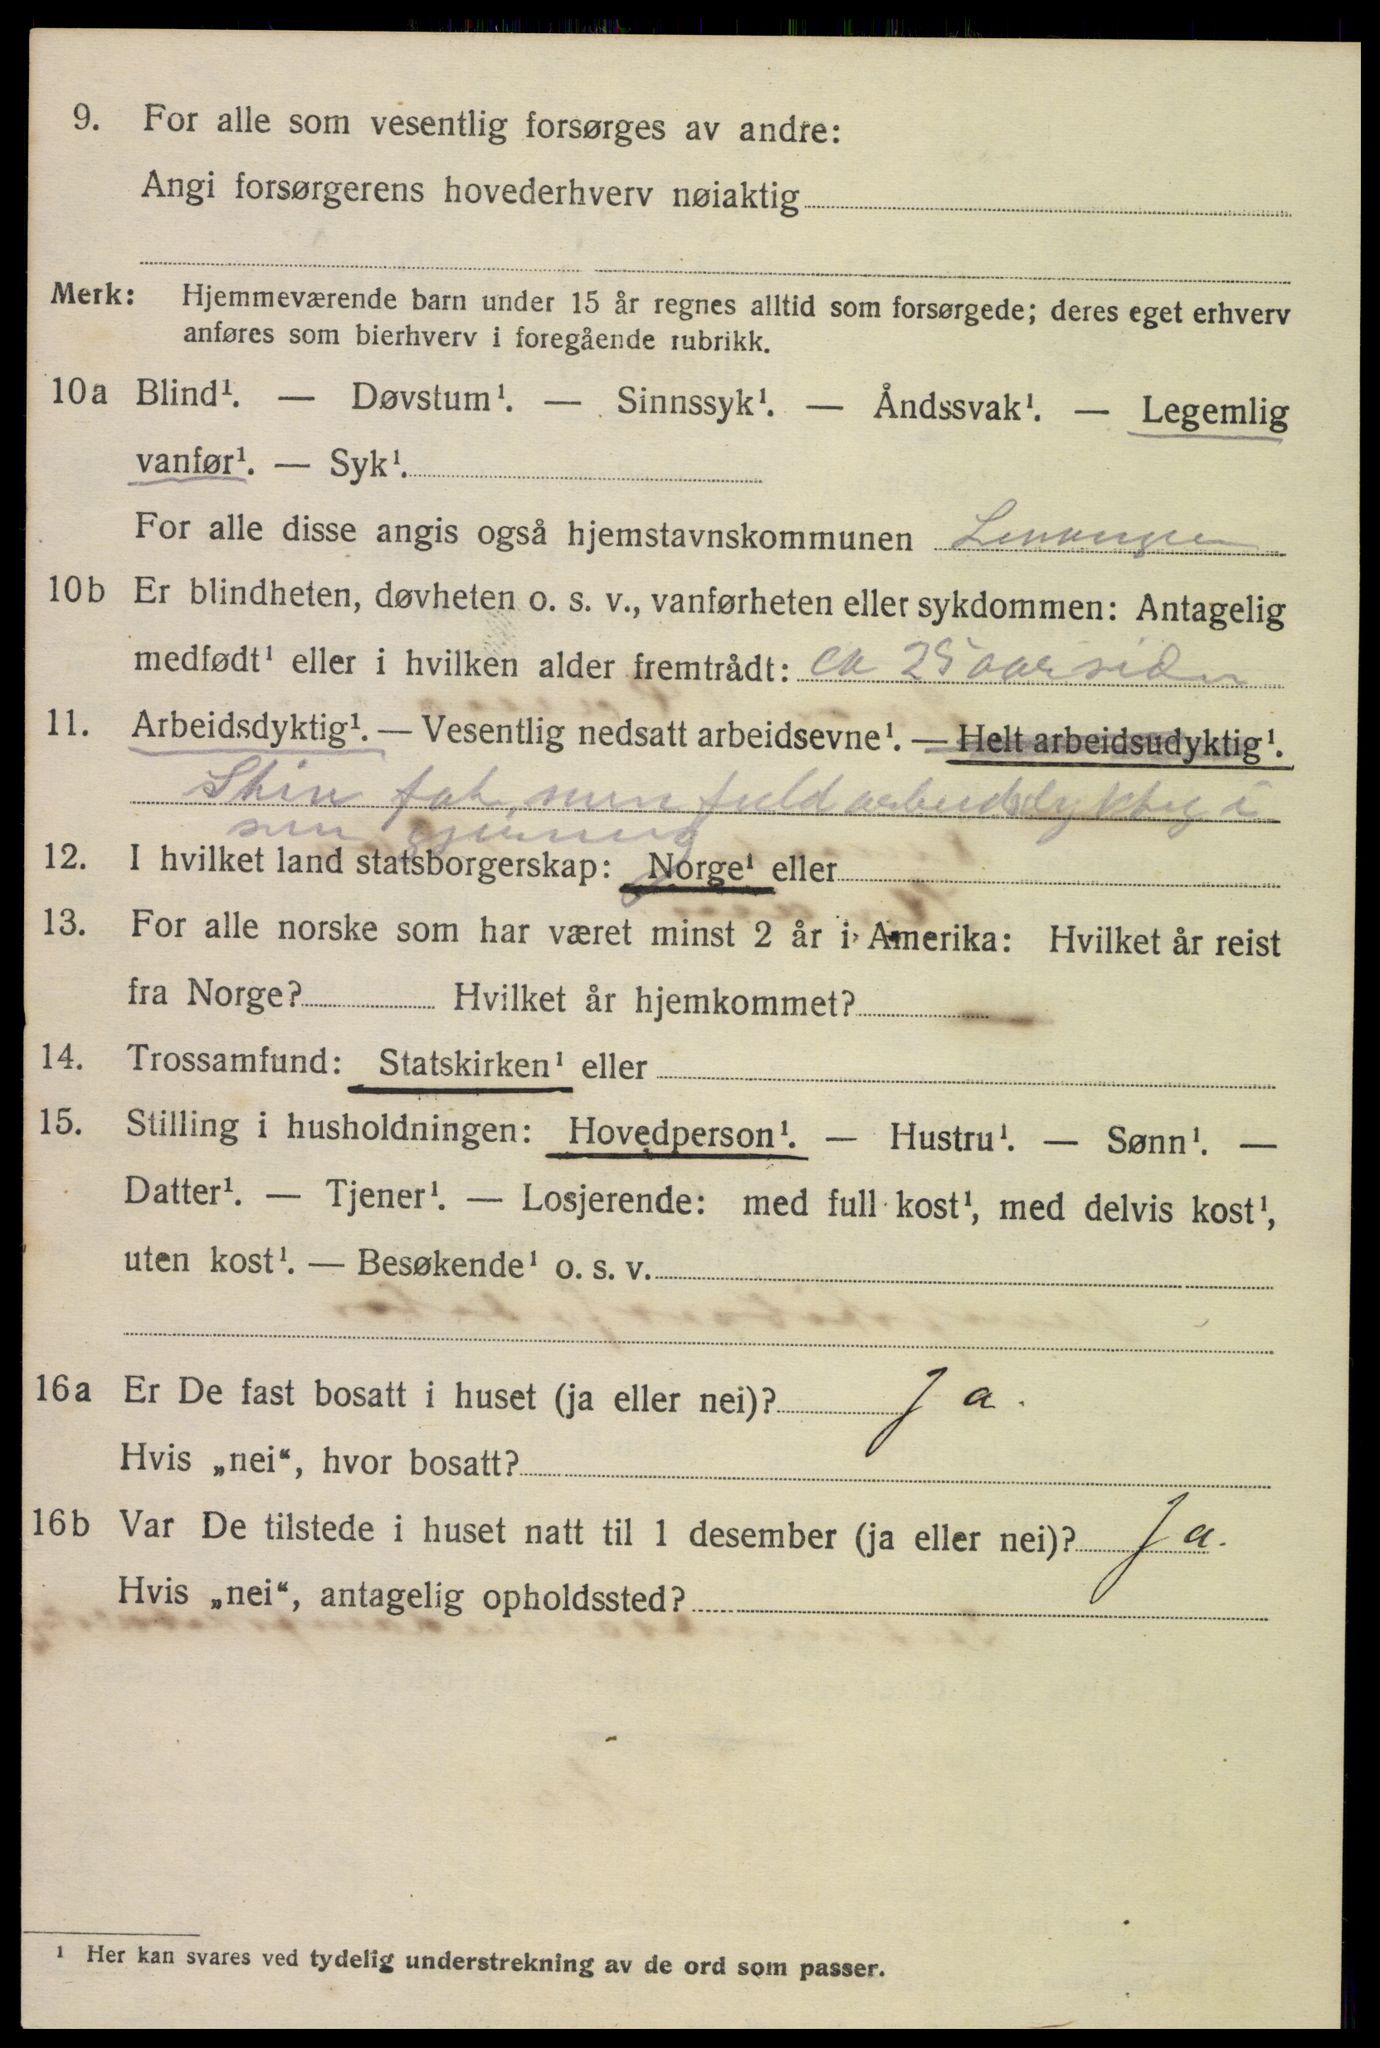 9. For alle som vesentlig forsørges av andre:
Angi forsørgerens hovederhverv nøiaktig
Merk: Hjemmeværende barn under 15 år regnes alltid som forsørgede; deres eget erhverv
anføres som bierhverv i foregående rubrikk.
10a Blind¹. — Døvstum¹. — Sinnssyk¹. — Åndssvak¹. — Legemlig
vanfør¹. — Syk¹.
For alle disse angis også hjemstavnskommunen
10b Er blindheten, døvheten o. s. v., vanførheten eller sykdommen: Antagelig
medfødt¹ eller i hvilken alder fremtrådt: ca 25 aar siden
11. Arbeidsdyktig¹. — Vesentlig nedsatt arbeidsevne¹. — Helt arbeidsudyktig¹.
men fuld arbeidsdyktig i
sin gjerning
12. I hvilket land statsborgerskap: Norge¹ eller
13. For alle norske som har været minst 2 år i Amerika: Hvilket år reist
fra Norge? Hvilket år hjemkommet?
14. Trossamfund: Statskirken¹ eller
15. Stilling i husholdningen: Hovedperson¹. — Hustru¹. — Sønn¹. —
Datter¹. — Tjener¹. — Losjerende: med full kost¹, med delvis kost¹,
uten kost¹. — Besøkende¹ o. s. v.
16a Er De fast bosatt i huset (ja eller nei)? Ja.
Hvis „nei“, hvor bosatt?
16b Var De tilstede i huset natt til 1 desember (ja eller nei)? Ja.
Hvis „nei“, antagelig opholdssted?
¹ Her kan svares ved tydelig understrekning av de ord som passer.